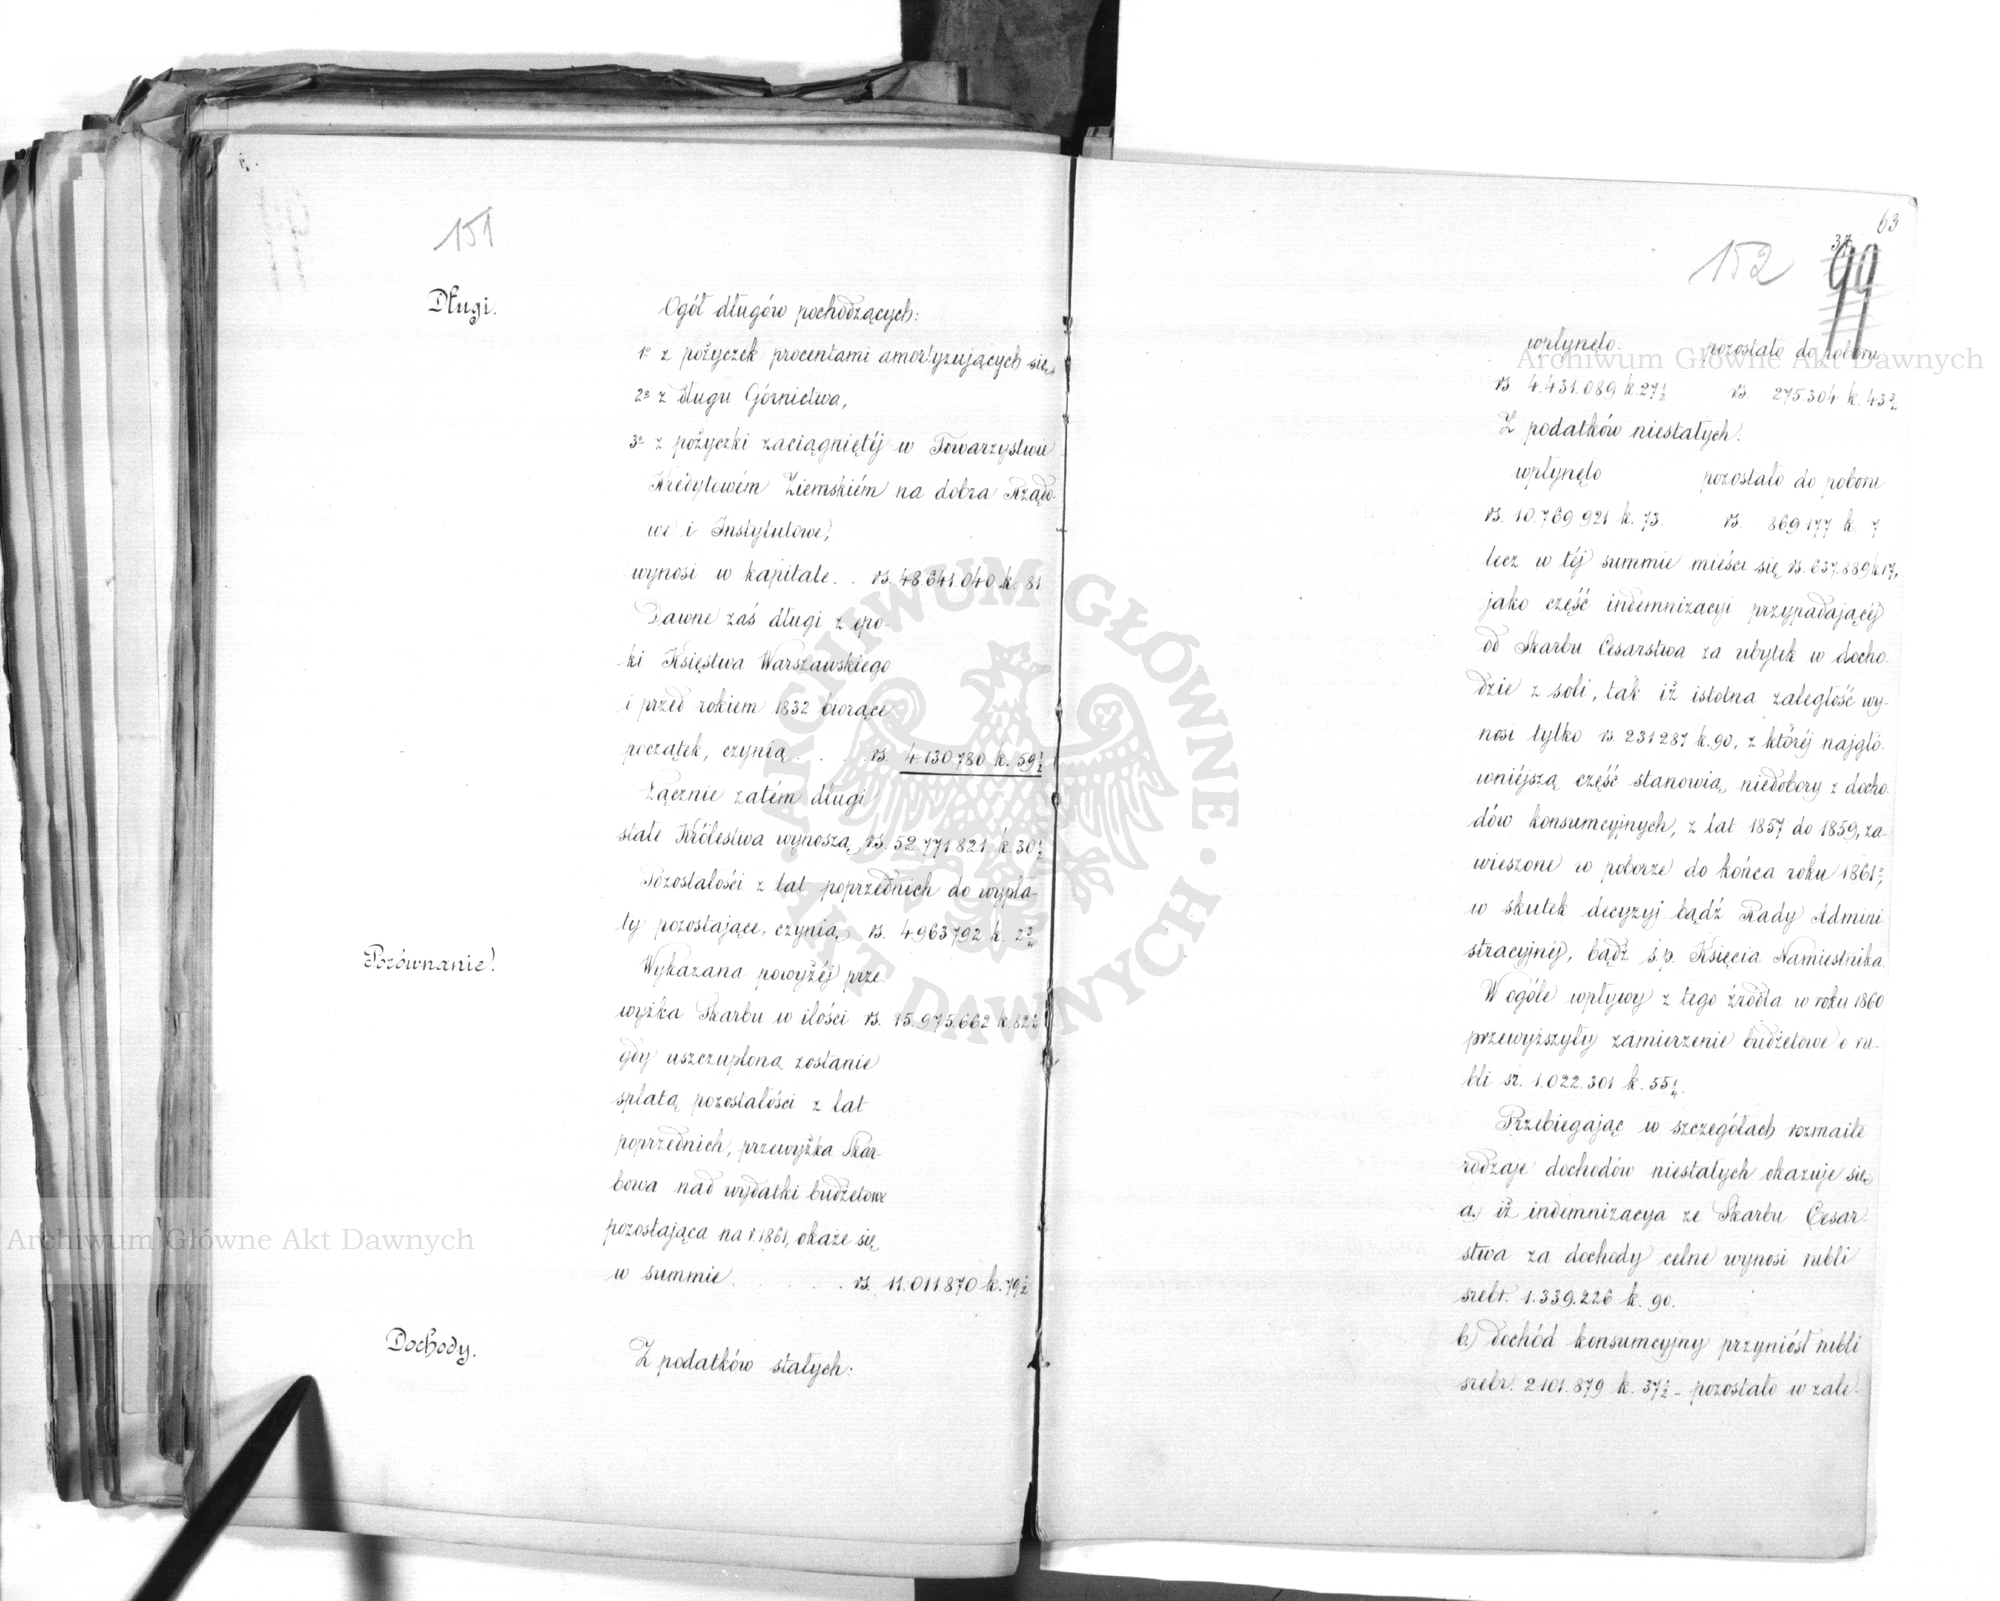 151
Długi.
Ogół długów pochodzących:
1º z pożyczek procentami amortyzujących się,
2º z długu Górnictwa,
3º z pożyczki zaciągniętéj w Towarzystwie
Kredytowém Ziemskiém na dobra Rządo-
we i Instytutowe,
wynosi w kapitale . . rs. 48 641 040 k. 81
Dawne zaś długi z epo-
ki Księstwa Warszawskiego
i przed rokiem 1832 biorące
początek, czynią . . . . rs. 4.130 780 k. 59½
Łącznie zatém długi
stałe Królestwa wynoszą rs. 52 771 821 k 30½
Pozostałości z lat poprzednich do wypła-
ty pozostające, czynią rs. 4.963 792 k. 2¾
Porównanie.
Wykazana powyżéj prze-
wyżka Skarbu w ilości rs. 15.975.662 k. 82¼
gdy uszczuploną zostanie
spłatą pozostałości z lat
poprzednich, przewyżka Skar-
bowa nad wydatki budżetowe
pozostająca na r. 1861, okaże się
w summie . . . . . rs. 11.011.870 k. 79½
Dochody.
Z podatków stałych.
63
37
152
99
wpłynęło. pozostało do poboru
rs 4.431.089 k. 27½ rs. 275.304 k. 43¾
Z podatków niestałych.
wpłynęło pozostało do poboru
rs. 10.769 921 k. 73. rs. 869.177 k. 7
lecz w téj summie mieści się rs. 637.889 k. 17,
jako część indemnizacyi przypadającéj
od Skarbu Cesarstwa za ubytek w docho-
dzie z soli, tak iż istotna zaległość wy-
nosi tylko rs. 231 287 k. 90, z któréj najgłó-
wniéjszą część stanowią niedobory z docho-
dów konsumcyjnych, z lat 1857 do 1859, za-
wieszone w poborze do końca roku 1861º,
w skutek decyzyj bądź Rady Admini-
stracyjnéj, bądź ś. p. Księcia Namiestnika.
W ogóle wpływy z tego źródła w roku 1860
przewyższyły zamierzenie budżetowe o ru-
bli sr. 1.022.301 k. 55¼.
Przebiegając w szczegółach rozmaite
rodzaje dochodów niestałych okazuje się
a.) iż indemnizacya ze Skarbu Cesar-
stwa za dochody celne wynosi rubli
srebr. 1.339.226 k. 90.
b.) dochód konsumcyjny przyniósł rubli
srebr. 2.101.879 k. 37½ - pozostało w zale-
Archiwum Główne Akt Dawnych
Archiwum Główne Akt Dawnych
ARCHIWUM GŁÓWNE AKT DAWNYCH